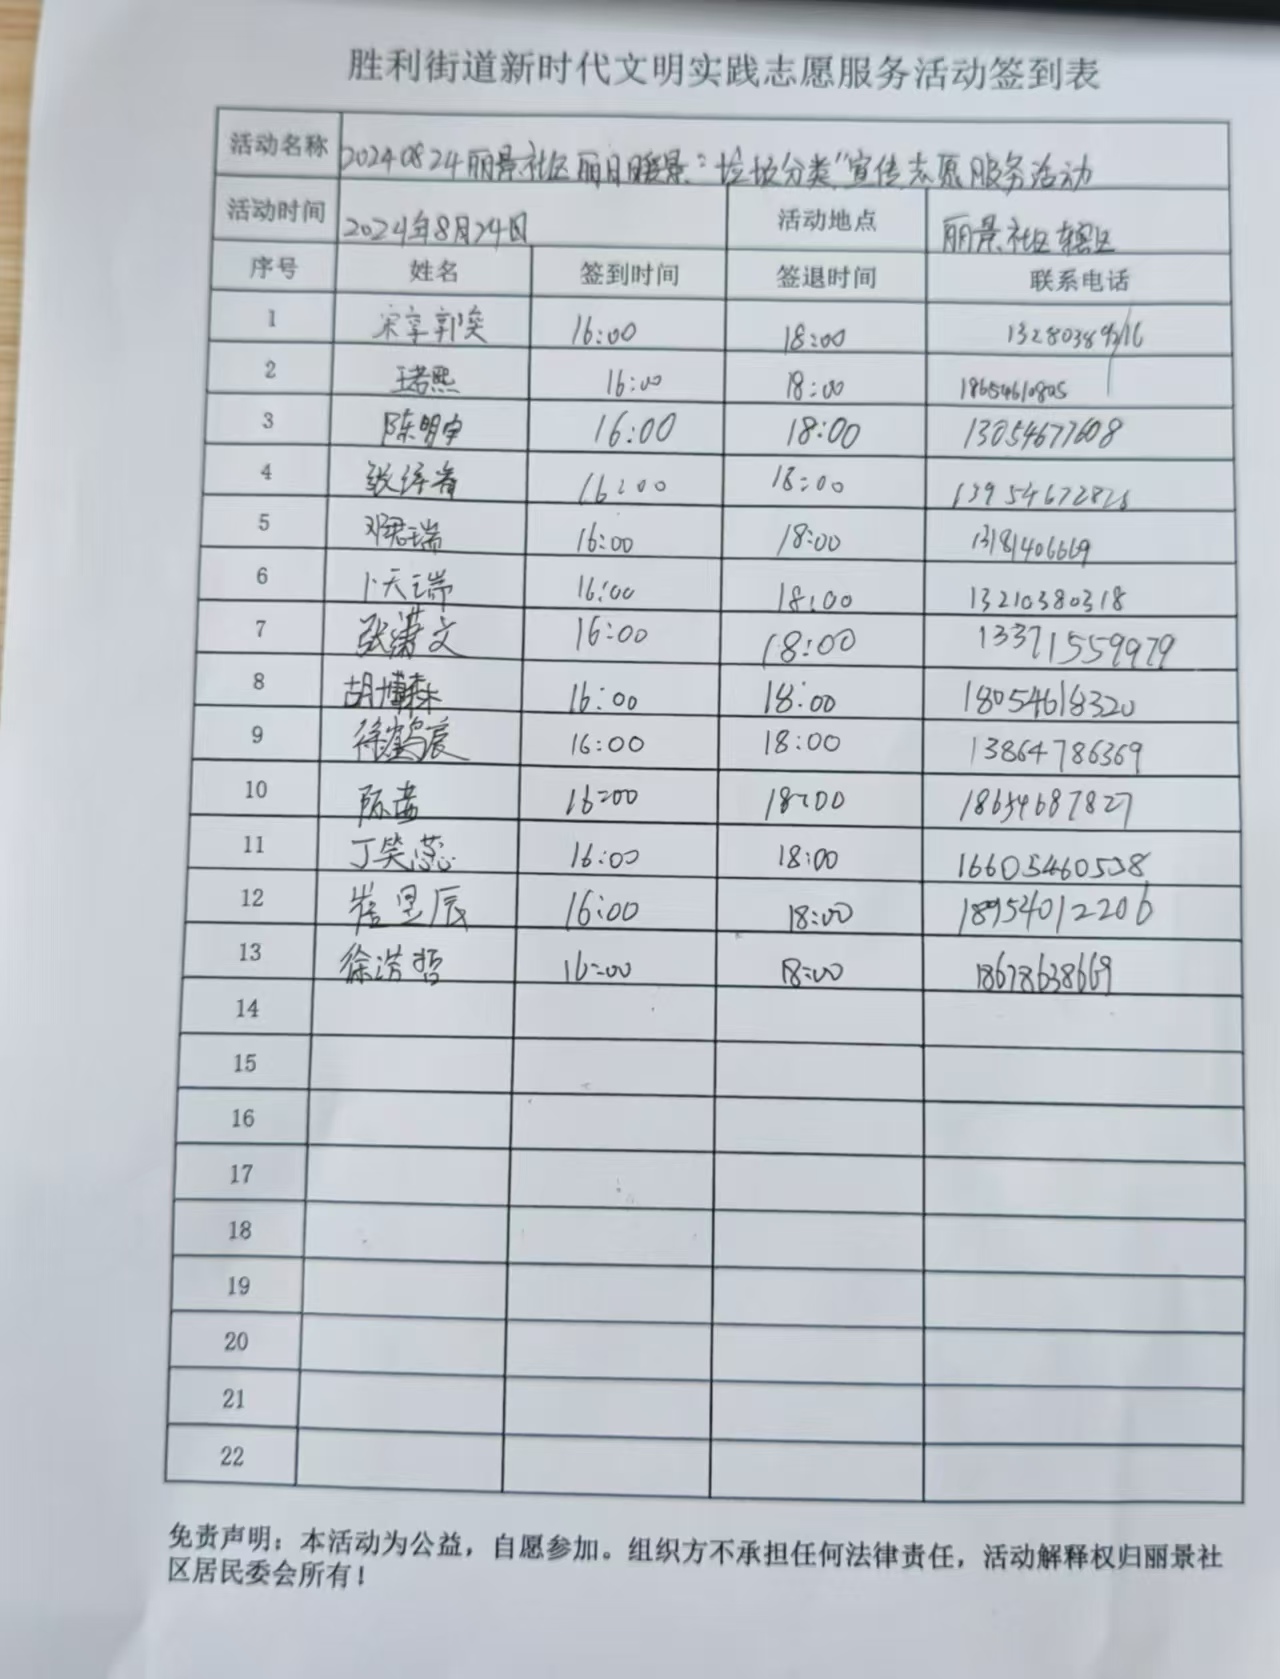 胜利街道新时代文明实践志愿服务活动签到表
活动名称 20240824丽景社区丽日暖景“垃圾分类”宣传志愿服务活动
活动时间 2024年8月24日 活动地点 丽景社区辖区
序号 姓名 签到时间 签退时间 联系电话
1 16:00 18:00
2 16:00 18:00 18654610805
3 陈明宇 16:00 18:00 13054677608
4 16:00 18:00
5 邓君瑞 16:00 18:00 13181406669
6 卜天瑞 16:00 18:00 13210380318
7 张潇文 16:00 18:00 13371559979
8 胡博森 16:00 18:00 18054618320
9 徐鹤宸 16:00 18:00 13864786369
10 陈茜 16:00 18:00 18654687827
11 丁笑蕊 16:00 18:00 16605460508
12 崔昱辰 16:00 18:00 18954012206
13 徐浩哲 16:00 18:00 18678638669
14
15
16
17
18
19
20
21
22
免责声明：本活动为公益，自愿参加。组织方不承担任何法律责任，活动解释权归丽景社
区居民委会所有！